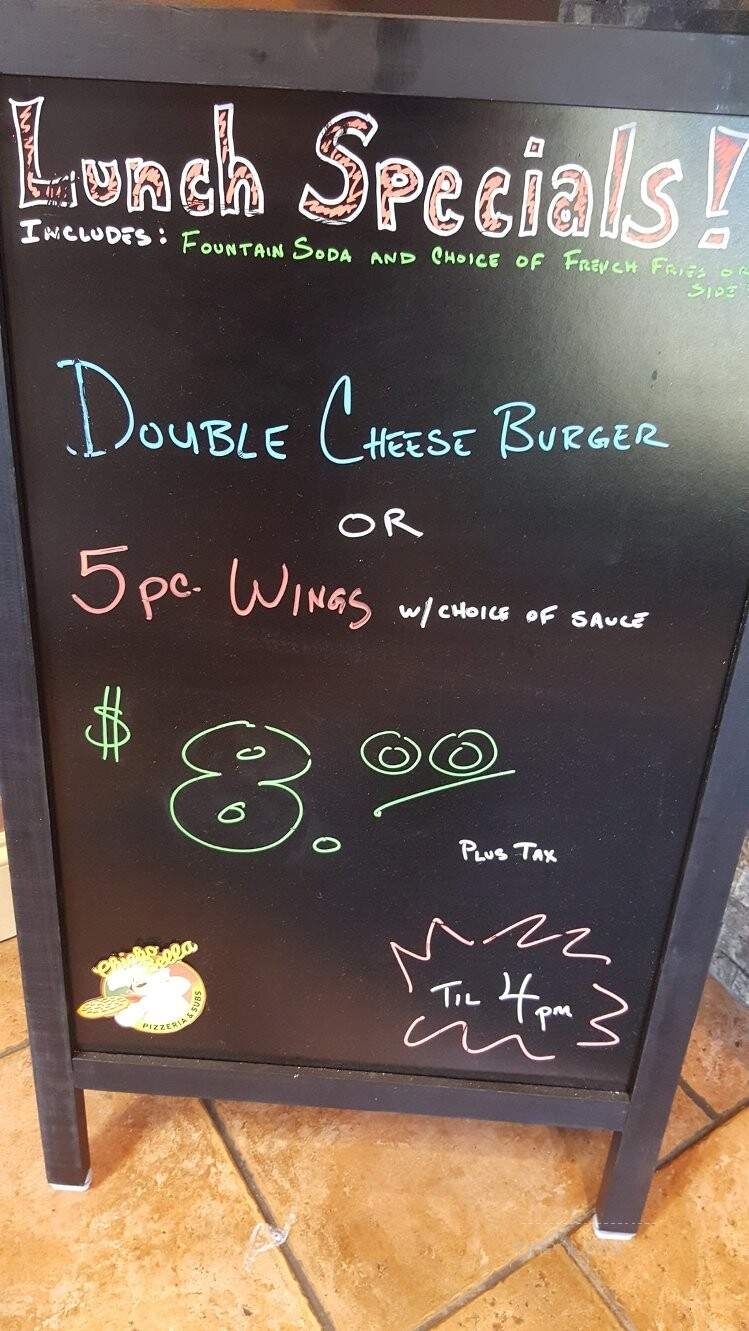 Lunch Specials!
INCLUDES: FOUNTAIN SODA AND CHOICE OF FRENCH FRIES OR
SIDE
DOUBLE CHEESE BURGER
OR
5 pc. WINGS W/ CHOICE OF SAUCE
$ 8.00
PLUS TAX
TIL 4 pm
PIZZERIA & SUBS